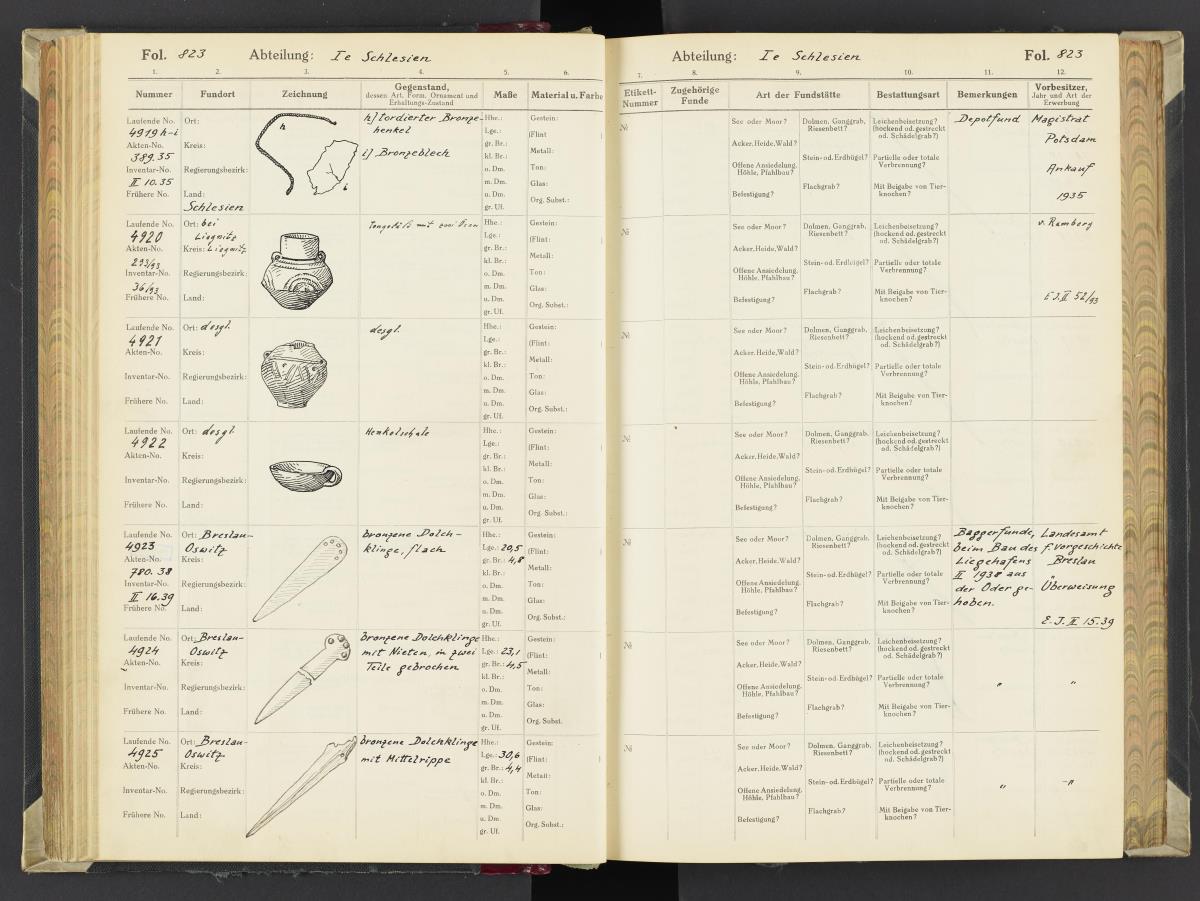 Fol. 823 Abteilung: Ie Schlesien
1. 2. 3. 4. 5. 6.
Nummer Fundort Zeichnung Gegenstand, dessen Art, Form, Ornament und Erhaltungs-Zustand Maße Material u. Farbe
Laufende No. Ort: h) tordierter Bronze- Hhe.: Gestein:
4919 h-i henkel Lge.: (Flint
Akten-No. Kreis: gr. Br.: Metall:
389.35 i) Bronzeblech kl. Br.:
Inventar-No. Regierungsbezirk: o. Dm. Ton:
II 10.35 m. Dm. Glas:
Frühere No. Land: u. Dm. Org. Subst.:
Schlesien gr. Uf.
h
i
Laufende No. Ort: bei Tongefäß mit zwei Ösen Hhe.: Gestein:
4920 Liegnitz Lge.: (Flint:
Akten-No. Kreis: Liegnitz gr. Br.: Metall:
293/93 kl. Br.:
Inventar-No. Regierungsbezirk: o. Dm. Ton:
36/93 m. Dm. Glas:
Frühere No. Land: u. Dm. Org. Subst.:
gr. Uf.
Laufende No. Ort: desgl. desgl. Hhe.: Gestein:
4921 Lge.: (Flint:
Akten-No. Kreis: gr. Br.: Metall:
kl. Br.:
Inventar-No. Regierungsbezirk: o. Dm. Ton:
m. Dm. Glas:
Frühere No. Land: u. Dm. Org. Subst.:
gr. Uf.
Laufende No. Ort: desgl. Henkelschale Hhe.: Gestein:
4922 Lge.: (Flint:
Akten-No. Kreis: gr. Br.: Metall:
kl. Br.:
Inventar-No. Regierungsbezirk: o. Dm. Ton:
m. Dm. Glas:
Frühere No. Land: u. Dm. Org. Subst.:
gr. Uf.
Laufende No. Ort: Breslau- bronzene Dolch- Hhe.: Gestein:
4923 Oswitz klinge, flach Lge.: 20,5 (Flint:
Akten-No. Kreis: gr. Br.: 4,8 Metall:
780.38 kl. Br.:
Inventar-No. Regierungsbezirk: o. Dm. Ton:
II 16.39 m. Dm. Glas:
Frühere No. Land: u. Dm. Org. Subst.:
gr. Uf.
Laufende No. Ort: Breslau- bronzene Dolchklinge Hhe.: Gestein:
4924 Oswitz mit Nieten, in zwei Lge.: 23,1 (Flint:
Akten-No. Kreis: Teile gebrochen gr. Br.: 4,5 Metall:
kl. Br.:
Inventar-No. Regierungsbezirk: o. Dm. Ton:
m. Dm. Glas:
Frühere No. Land: u. Dm. Org. Subst.
gr. Uf.
Laufende No. Ort: Breslau- bronzene Dolchklinge Hhe.: Gestein:
4925 Oswitz mit Mittelrippe Lge.: 30,6 (Flint:
Akten-No. Kreis: gr. Br.: 4,4 Metall:
kl. Br.:
Inventar-No. Regierungsbezirk: o. Dm. Ton:
m. Dm. Glas:
Frühere No. Land: u. Dm. Org. Subst.:
gr. Uf.
Abteilung: Ie Schlesien Fol. 823
7. 8. 9. 10. 11. 12.
Etikett-Nummer Zugehörige Funde Art der Fundstätte Bestattungsart Bemerkungen Vorbesitzer, Jahr und Art der Erwerbung
№ See oder Moor? Dolmen, Ganggrab, Riesenbett? Leichenbeisetzung? (hockend od. gestreckt od. Schädelgrab?) Depotfund Magistrat
Potsdam
Acker, Heide, Wald? Stein- od. Erdhügel? Partielle oder totale Verbrennung? Ankauf
Offene Ansiedelung, Höhle, Pfahlbau?
Befestigung? Flachgrab? Mit Beigabe von Tierknochen? 1935
№ See oder Moor? Dolmen, Ganggrab, Riesenbett? Leichenbeisetzung? (hockend od. gestreckt od. Schädelgrab?) v. Ramberg
Acker, Heide, Wald? Stein- od. Erdhügel? Partielle oder totale Verbrennung?
Offene Ansiedelung, Höhle, Pfahlbau?
Befestigung? Flachgrab? Mit Beigabe von Tierknochen? E.J. II 52/93
№ See oder Moor? Dolmen, Ganggrab, Riesenbett? Leichenbeisetzung? (hockend od. gestreckt od. Schädelgrab?)
Acker, Heide, Wald? Stein- od. Erdhügel? Partielle oder totale Verbrennung?
Offene Ansiedelung, Höhle, Pfahlbau?
Befestigung? Flachgrab? Mit Beigabe von Tierknochen?
№ See oder Moor? Dolmen, Ganggrab, Riesenbett? Leichenbeisetzung? (hockend od. gestreckt od. Schädelgrab?)
Acker, Heide, Wald? Stein- od. Erdhügel? Partielle oder totale Verbrennung?
Offene Ansiedelung, Höhle, Pfahlbau?
Befestigung? Flachgrab? Mit Beigabe von Tierknochen?
№ See oder Moor? Dolmen, Ganggrab, Riesenbett? Leichenbeisetzung? (hockend od. gestreckt od. Schädelgrab?) Baggerfunde, Landesamt
beim Bau des f. Vorgeschichte
Acker, Heide, Wald? Liegehafens Breslau
Stein- od. Erdhügel? Partielle oder totale Verbrennung? II 1938 aus
Offene Ansiedelung, Höhle, Pfahlbau? der Oder ge- Überweisung
Befestigung? Flachgrab? Mit Beigabe von Tierknochen? hoben.
E.J. II 15.39
№ See oder Moor? Dolmen, Ganggrab, Riesenbett? Leichenbeisetzung? (hockend od. gestreckt od. Schädelgrab?)
Acker, Heide, Wald? Stein- od. Erdhügel? Partielle oder totale Verbrennung?
Offene Ansiedelung, Höhle, Pfahlbau? " "
Befestigung? Flachgrab? Mit Beigabe von Tierknochen?
№ See oder Moor? Dolmen, Ganggrab, Riesenbett? Leichenbeisetzung? (hockend od. gestreckt od. Schädelgrab?)
Acker, Heide, Wald? Stein- od. Erdhügel? Partielle oder totale Verbrennung?
Offene Ansiedelung, Höhle, Pfahlbau? " -"
Befestigung? Flachgrab? Mit Beigabe von Tierknochen?